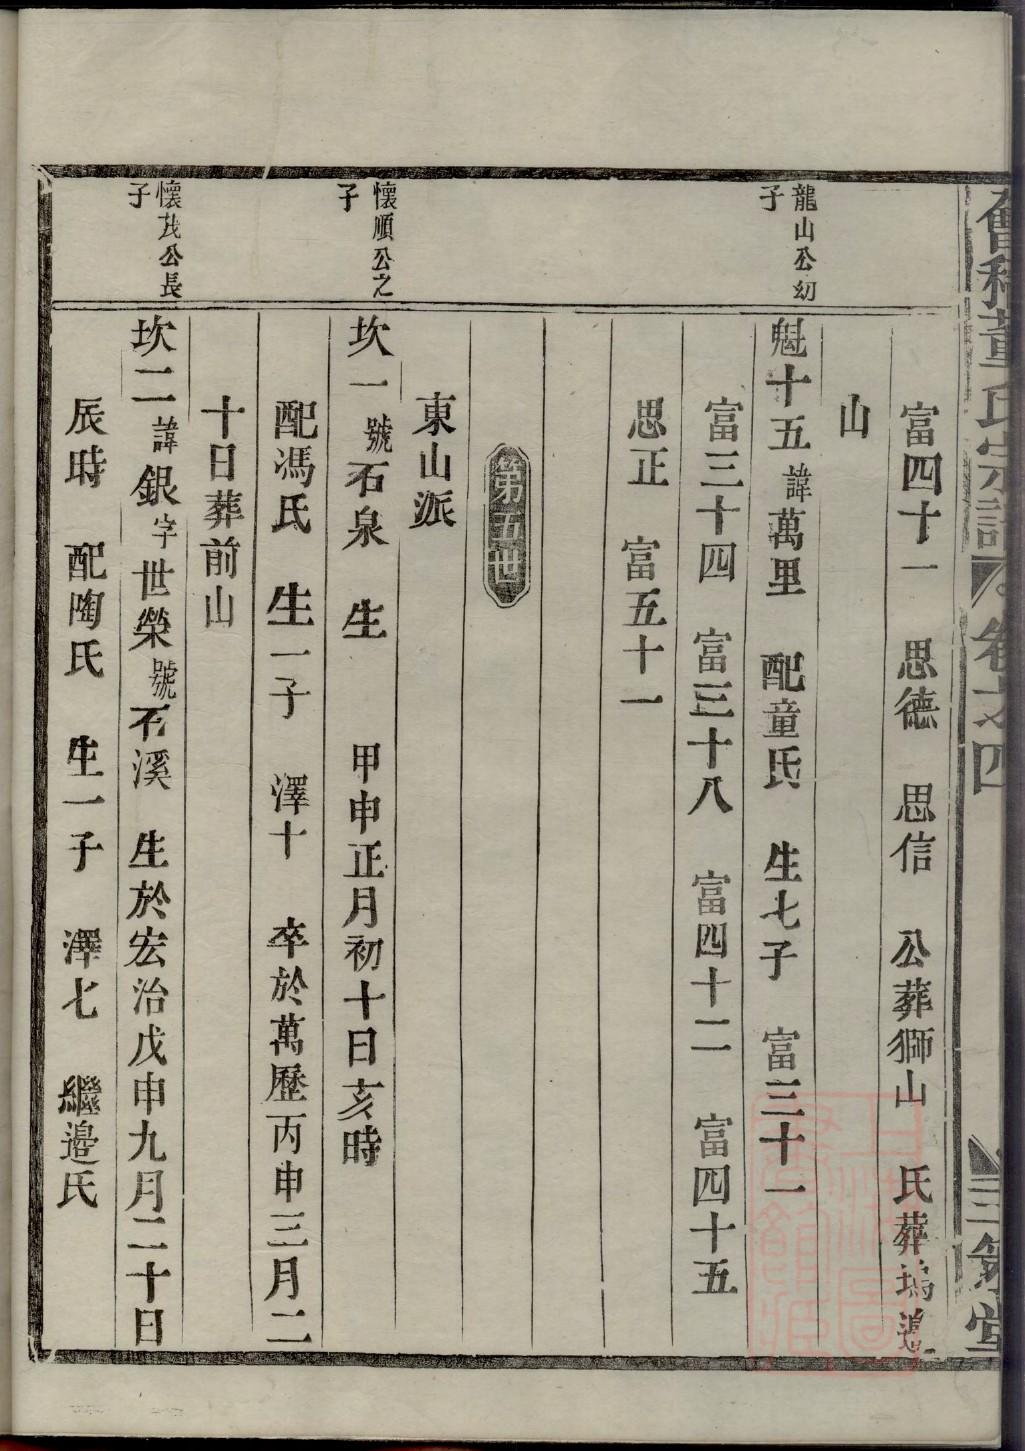 董氏宗譜 卷之四 三策堂
富四十一 思德 思信 公葬獅山 氏葬塢邊
山
龍山公幼子
魁十五諱萬里 配童氏 生七子 富三十一
富三十四 富三十八 富四十二 富四十五
思正 富五十一
第五世
東山派
懷順公之子
坎一號石泉 生 甲申正月初十日亥時
配馮氏 生一子 澤十 卒於萬歷丙申三月二
十日葬前山
懷茂公長子
坎二諱銀字世榮號石溪 生於宏治戊申九月二十日
辰時 配陶氏 生一子 澤七 繼邉氏